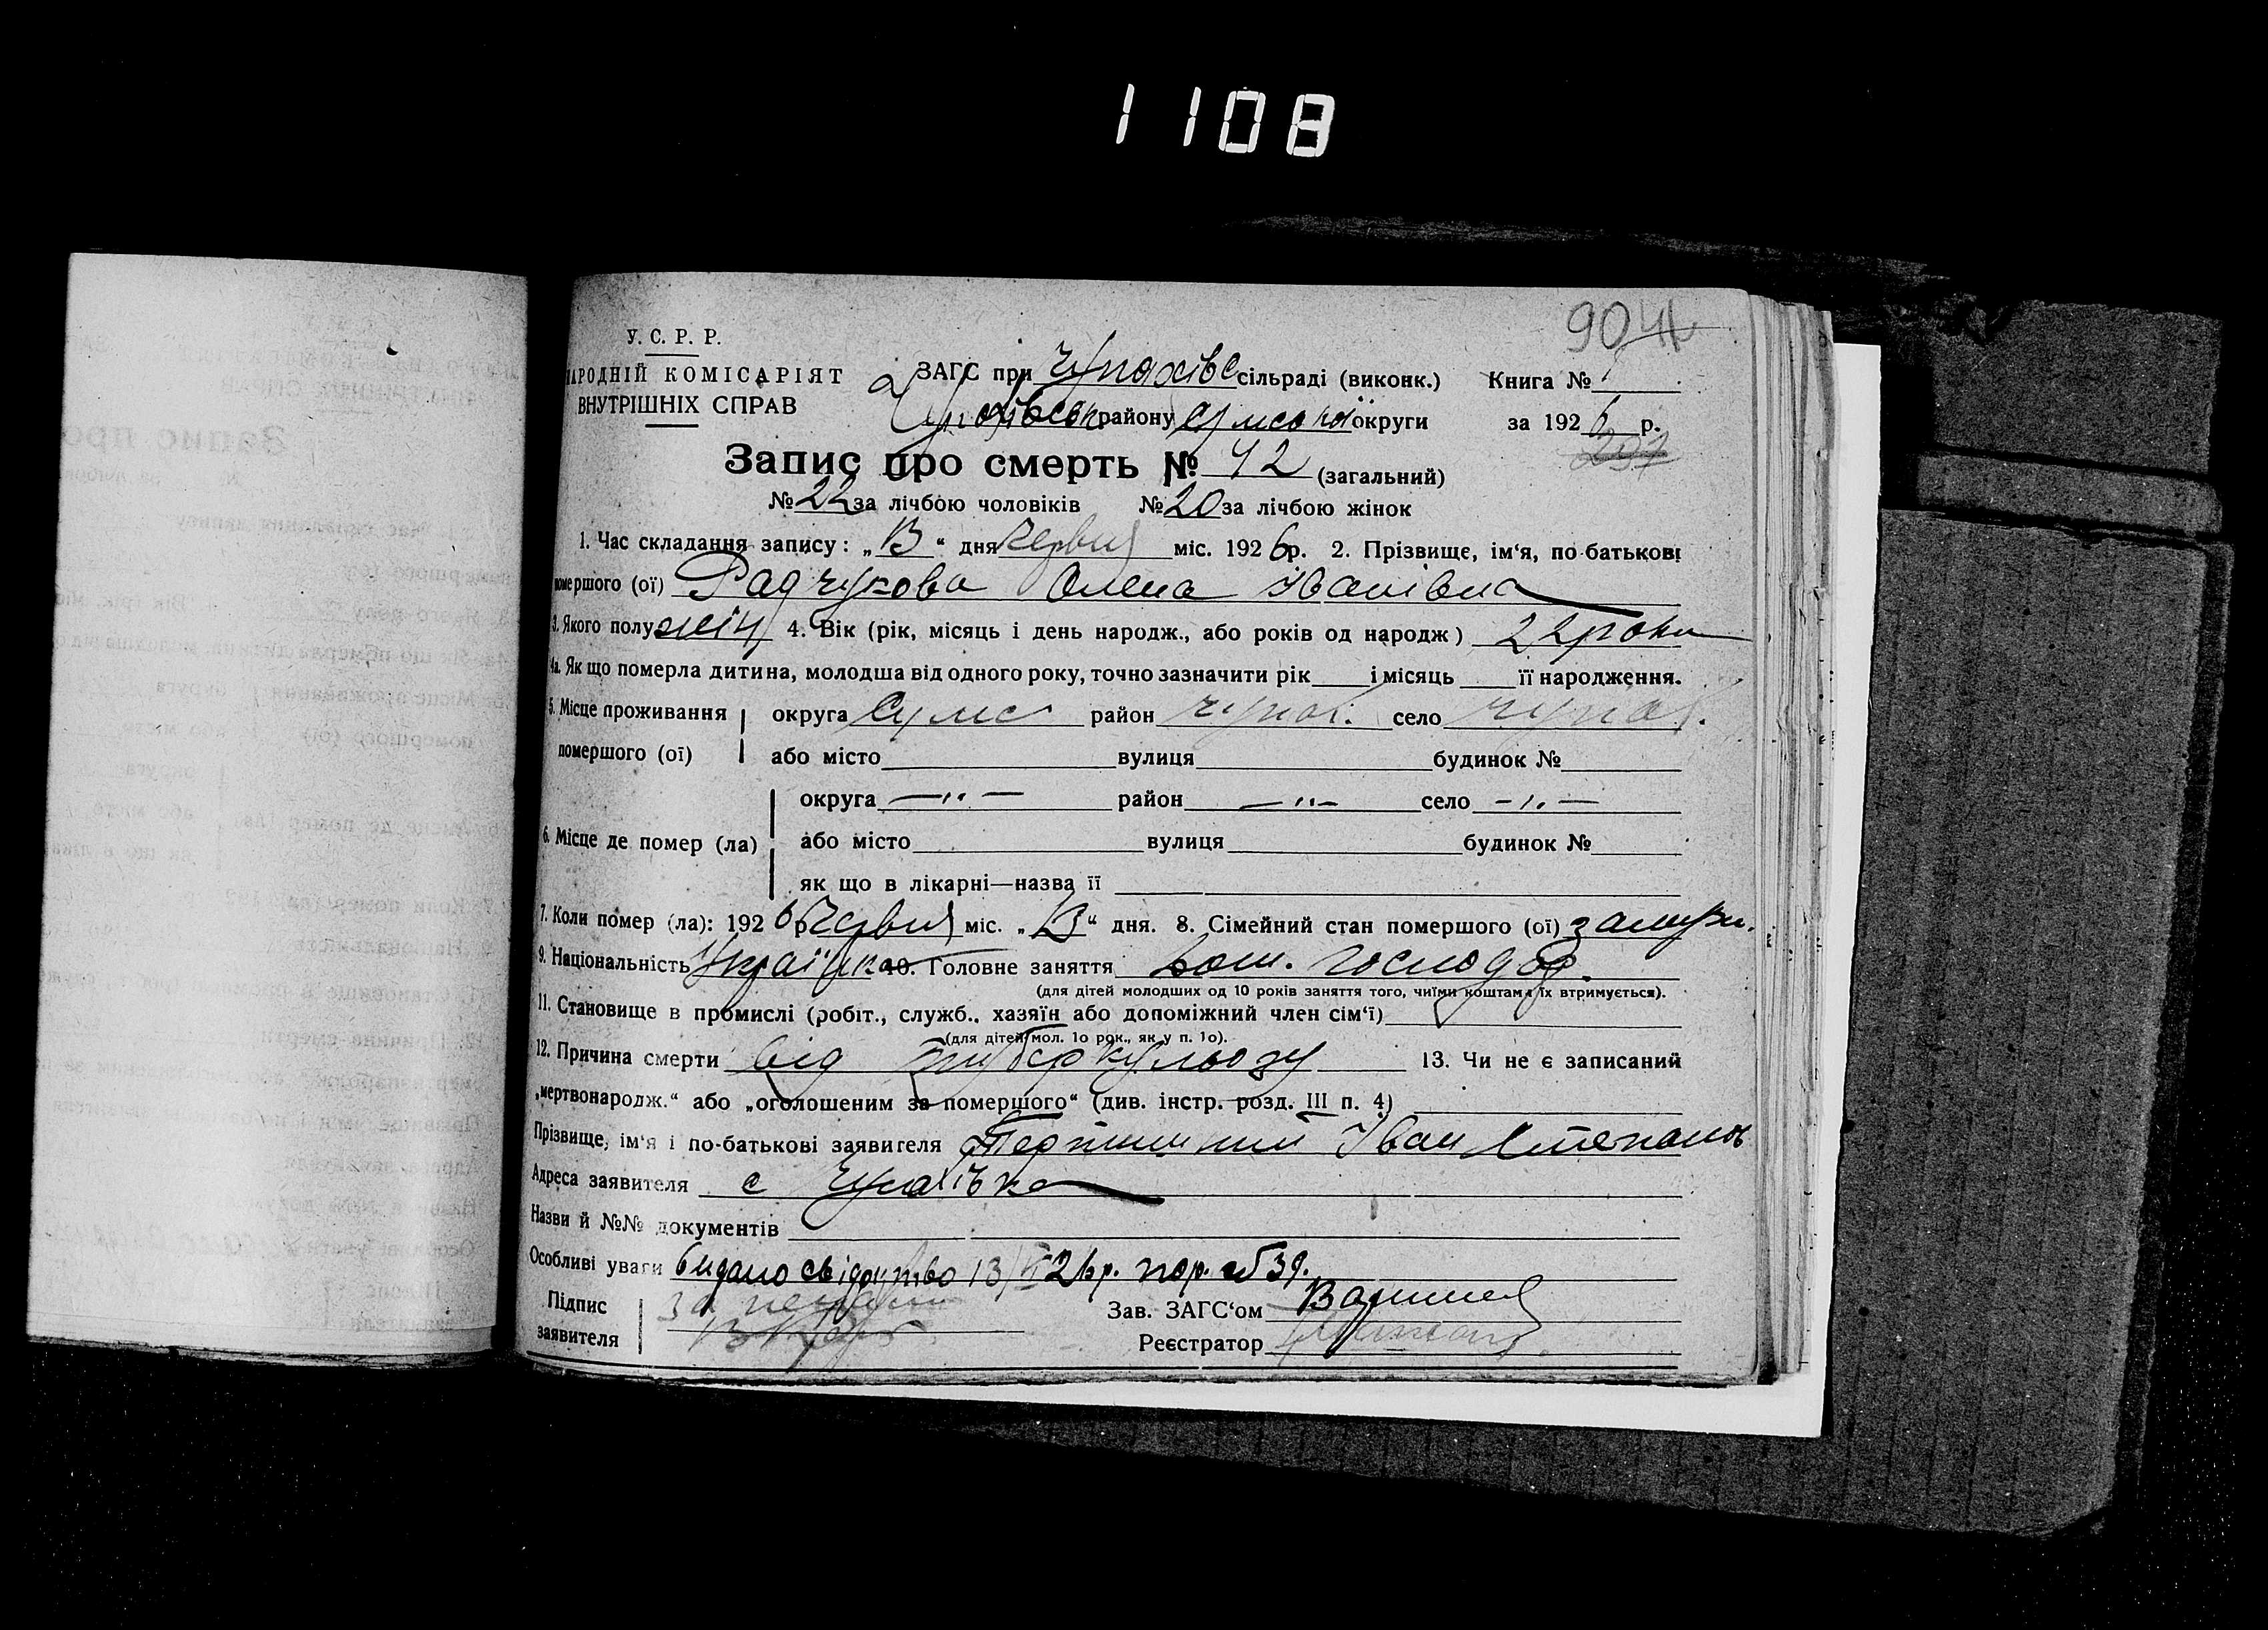 1108
904
У. С. Р. Р.
НАРОДНІЙ КОМІСАРІЯТ
ВНУТРІШНІХ СПРАВ
ЗАГС при Чупахівс сільраді (виконк.) Книга №
Чупахівськ району Сумської округи за 1926 р.
297
Запис про смерть № 42 (загальний)
№ 22 за лічбою чоловіків № 20 за лічбою жінок
1. Час складання запису: „13“ дня Червня міс. 1926 р. 2. Прізвище, ім‘я, по-батькові
помершого (ої) Радчукова Олена Іванівна
3. Якого полу жіч 4. Вік (рік, місяць і день народж., або років од народж) 22 роки
4а. Як що померла дитина, молодша від одного року, точно зазначити рік і місяць її народження.
5. Місце проживання округа Сумс район Чупах. село Чупах.
помершого (ої) або місто вулиця будинок №
округа —„— район —„— село —„—
6. Місце де помер (ла) або місто вулиця будинок №
як що в лікарні—назва її
7. Коли помер (ла): 1926 р Червня міс. „13“ дня. 8. Сімейний стан помершого (ої) замужн.
9. Національність Українка 10. Головне заняття дом. господар.
(для дітей молодших од 10 років заняття того, чиїми коштами їх втримується).
11. Становище в промислі (робіт., служб., хазяїн або допоміжний член сім‘ї)
(для дітей мол. 1о рок., як у п. 1о).
12. Причина смерти від туберкульозу 13. Чи не є записаний
„мертвонародж.“ або „оголошеним за помершого“ (див. інстр. розд. III п. 4)
Прізвище, ім‘я і по-батькові заявителя Іван Степанов
Адреса заявителя с Чупахівка
Назви й №№ документів
Особливі уваги видано свідоцтво 13/VI 26 р. пор. №39.
Підпис Зав. ЗАГС‘ом
заявителя Реєстратор